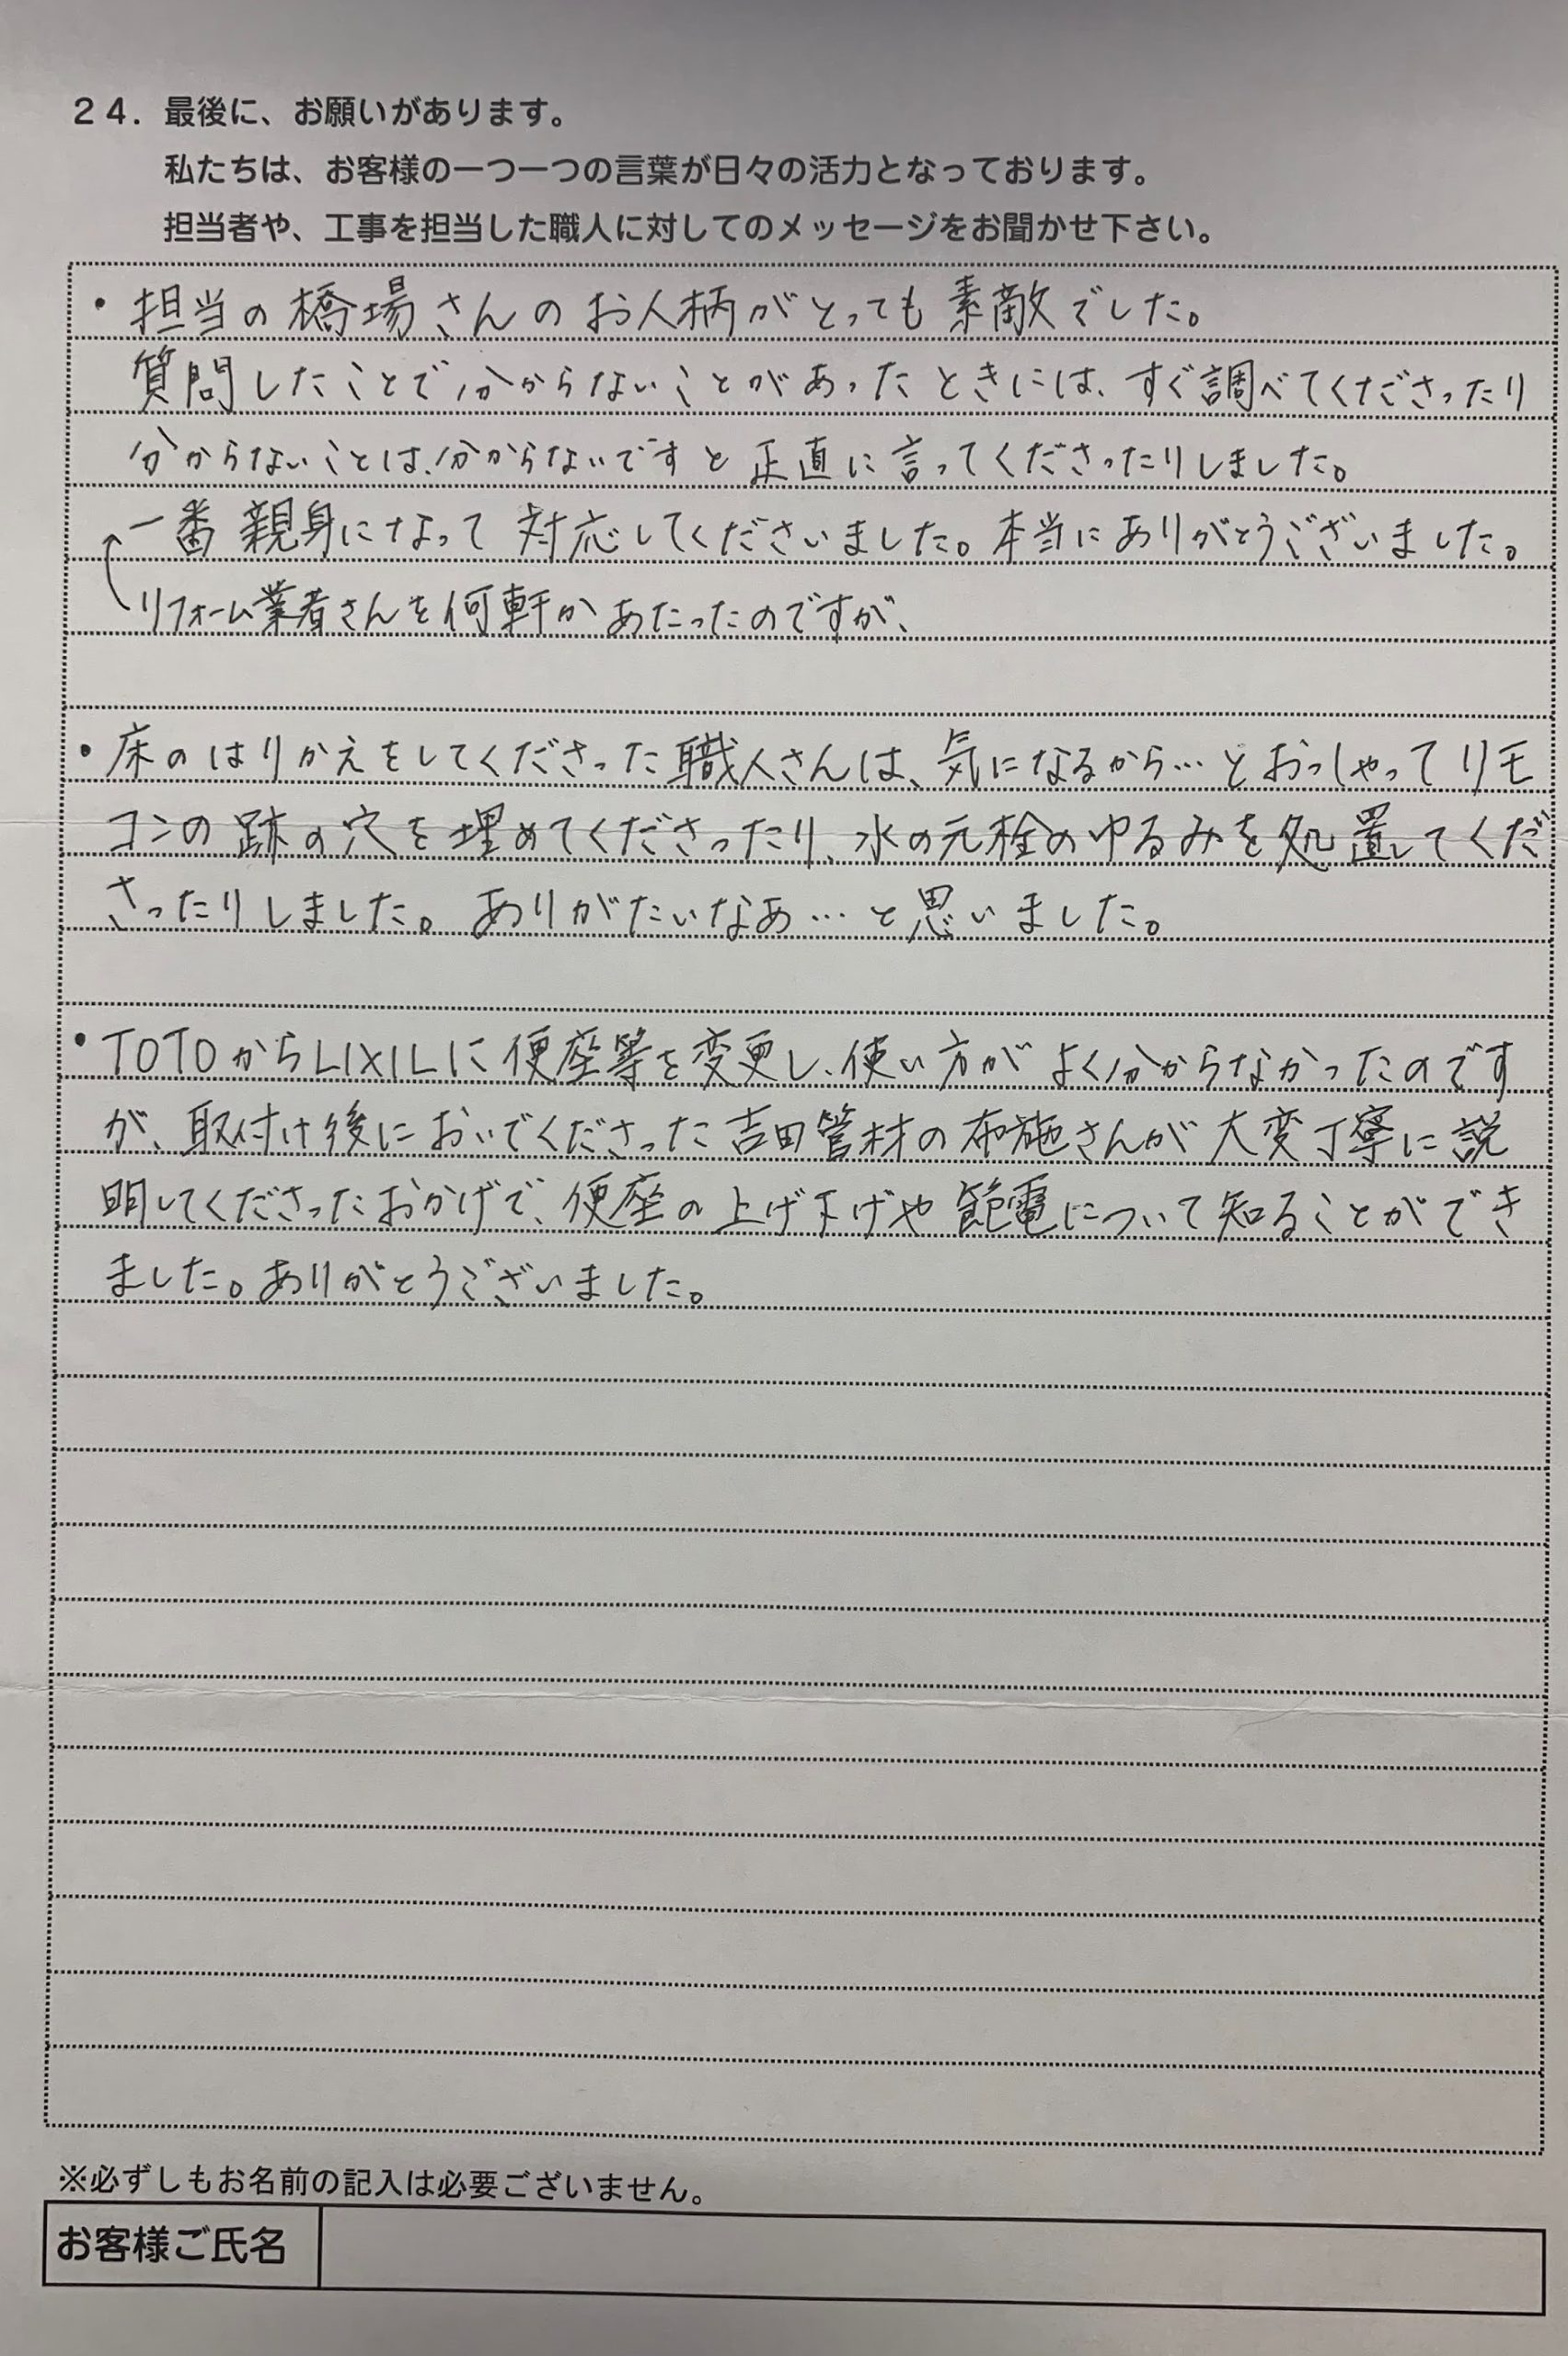 24. 最後に、お願いがあります。
私たちは、お客様の一つ一つの言葉が日々の活力となっております。
担当者や、工事を担当した職人に対してのメッセージをお聞かせ下さい。
・担当の橋場さんのお人柄がとっても素敵でした。
質問したことで分からないことがあったときには、すぐ調べてくださったり
分からないことは、分からないですと正直に言ってくださったりしました。
一番親身になって対応してくださいました。本当にありがとうございました。
リフォーム業者さんを何軒かあたったのですが、
・床のはりかえをしてくださった職人さんは、気になるから…とおっしゃってリモ
コンの跡の穴を埋めてくださったり、水の元栓のゆるみを処置してくだ
さったりしました。ありがたいなあ…と思いました。
・TOTOからLIXILに便座等を変更し、使い方がよく分からなかったのです
が、取付け後においでくださった吉田管材の布施さんが大変丁寧に説
明してくださったおかげで、便座の上げ下げや節電について知ることができ
ました。ありがとうございました。
※必ずしもお名前の記入は必要ございません。
お客様ご氏名